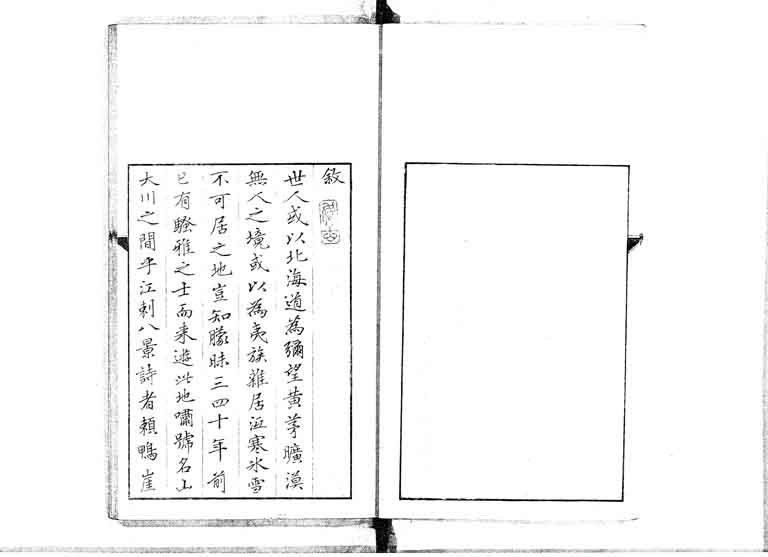 敘
世人或以北海道為彌望黃茅曠漠
無人之境或以為夷族雜居沍寒氷雪
不可居之地豈知朦昧三四十年前
已有騷雅之士而来遊此地嘯號名山
大川之間乎江刺八景詩者頼鴨崖